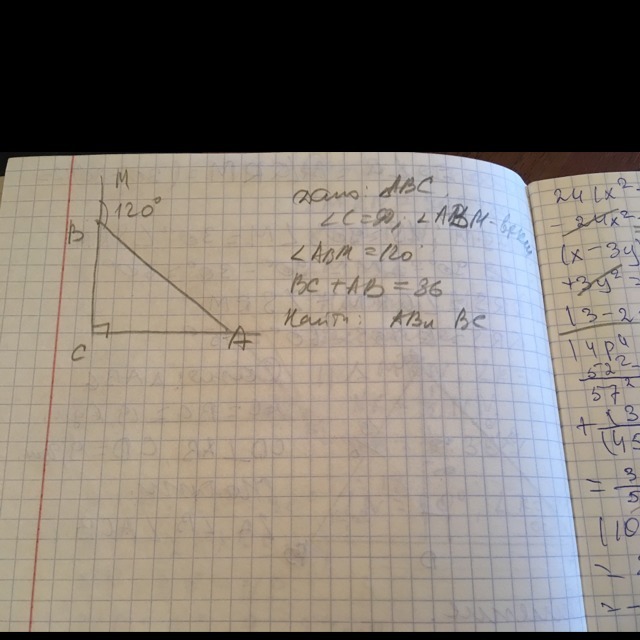 M
120°
B
C
A
Дано: ABC
∠C=90, ∠ABM - внеш
∠ABM = 120°
BC + AB = 36
Найти: AB и BC
24(x²
- 24x²
(x - 3y
13 - 2
14p4
522
57
= 3
5
(10